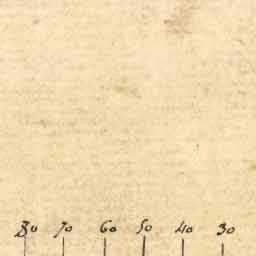 80 70 60 50 40 30